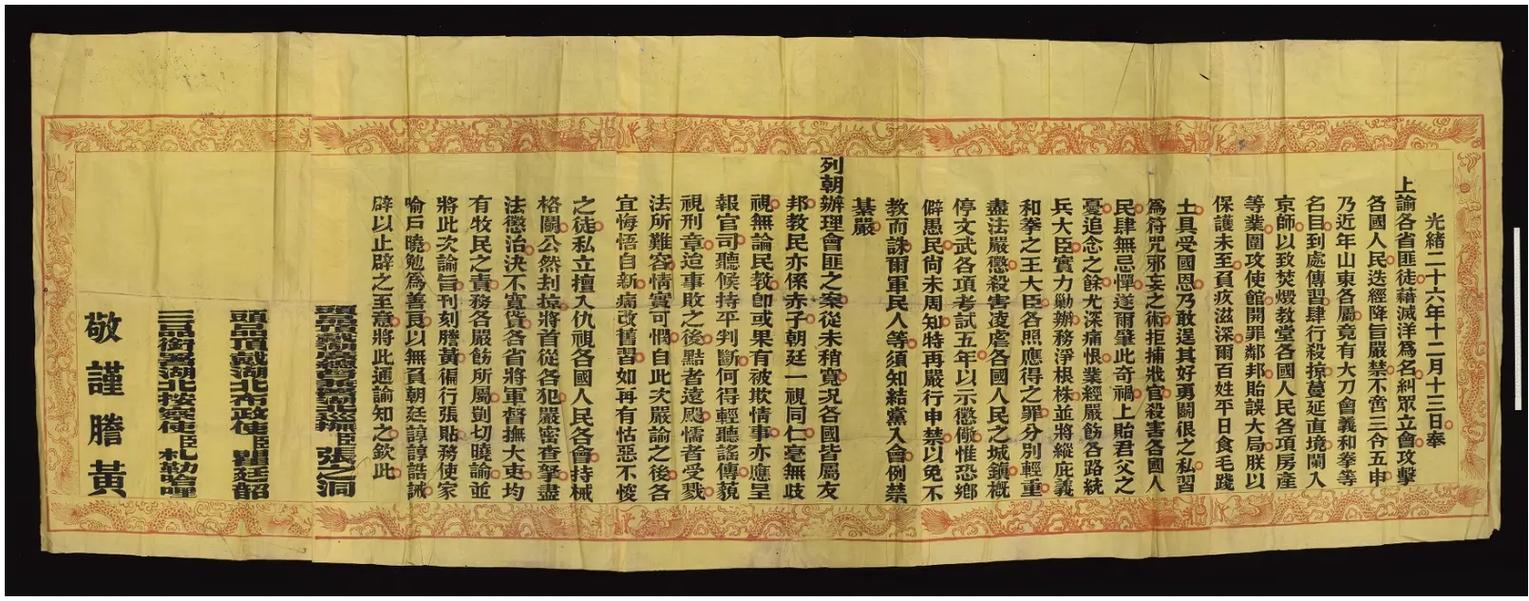 光緒二十六年十二月十三日奉
上諭各省匪徒藉滅洋爲名糾眾立會攻擊
各國人民迭經降旨嚴禁不啻三令五申
乃近年山東各屬竟有大刀會義和拳等
名目到處傳習肆行殺掠蔓延直境闌入
京師以致焚燬教堂各國人民各項房產
等業圍攻使館開罪鄰邦貽誤大局朕以
保護未至負疚滋深爾百姓平日食毛踐
土具受國恩乃敢逞其好勇鬭很之私習
爲符咒邪妄之術拒捕戕官殺害各國人
民肆無忌憚遂爾肇此奇禍上貽君父之
憂追念之餘尤深痛恨業經嚴飭各路統
兵大臣實力勦辦務淨根株並將縱庇義
和拳之王大臣各照應得之罪分別輕重
盡法嚴懲殺害凌虐各國人民之城鎮概
停文武各項考試五年以示懲儆惟恐鄉
僻愚民尚未周知特再嚴行申禁以免不
教而誅爾軍民人等須知結黨入會例禁
綦嚴
列朝辦理會匪之案從未稍寬况各國皆屬友
邦教民亦係赤子朝廷一視同仁毫無歧
視無論民教卽或果有被欺情事亦應呈
報官司聽候持平判斷何得輕聽謠傳藐
視刑章迨事敗之後黠者遠颺懦者受戮
法所難容情實可憫自此次嚴諭之後各
宜悔悟自新痛改舊習如再有怙惡不悛
之徒私立擅入仇視各國人民各會持械
格鬭公然刦掠將首從各犯嚴密查拏盡
法懲治決不寬貸各省將軍督撫大吏均
有牧民之責務各嚴飭所屬剴切曉諭並
將此次諭旨刊刻謄黃徧行張貼務使家
喻戶曉勉爲善良以無負朝廷諄諄誥誡
辟以止辟之至意將此通諭知之欽此
頭品頂戴湖廣總督兼署湖北巡撫臣張之洞
頭品頂戴湖北布政使臣瞿廷韶
三品銜署湖北按察使臣札勒哈哩
敬謹謄黃